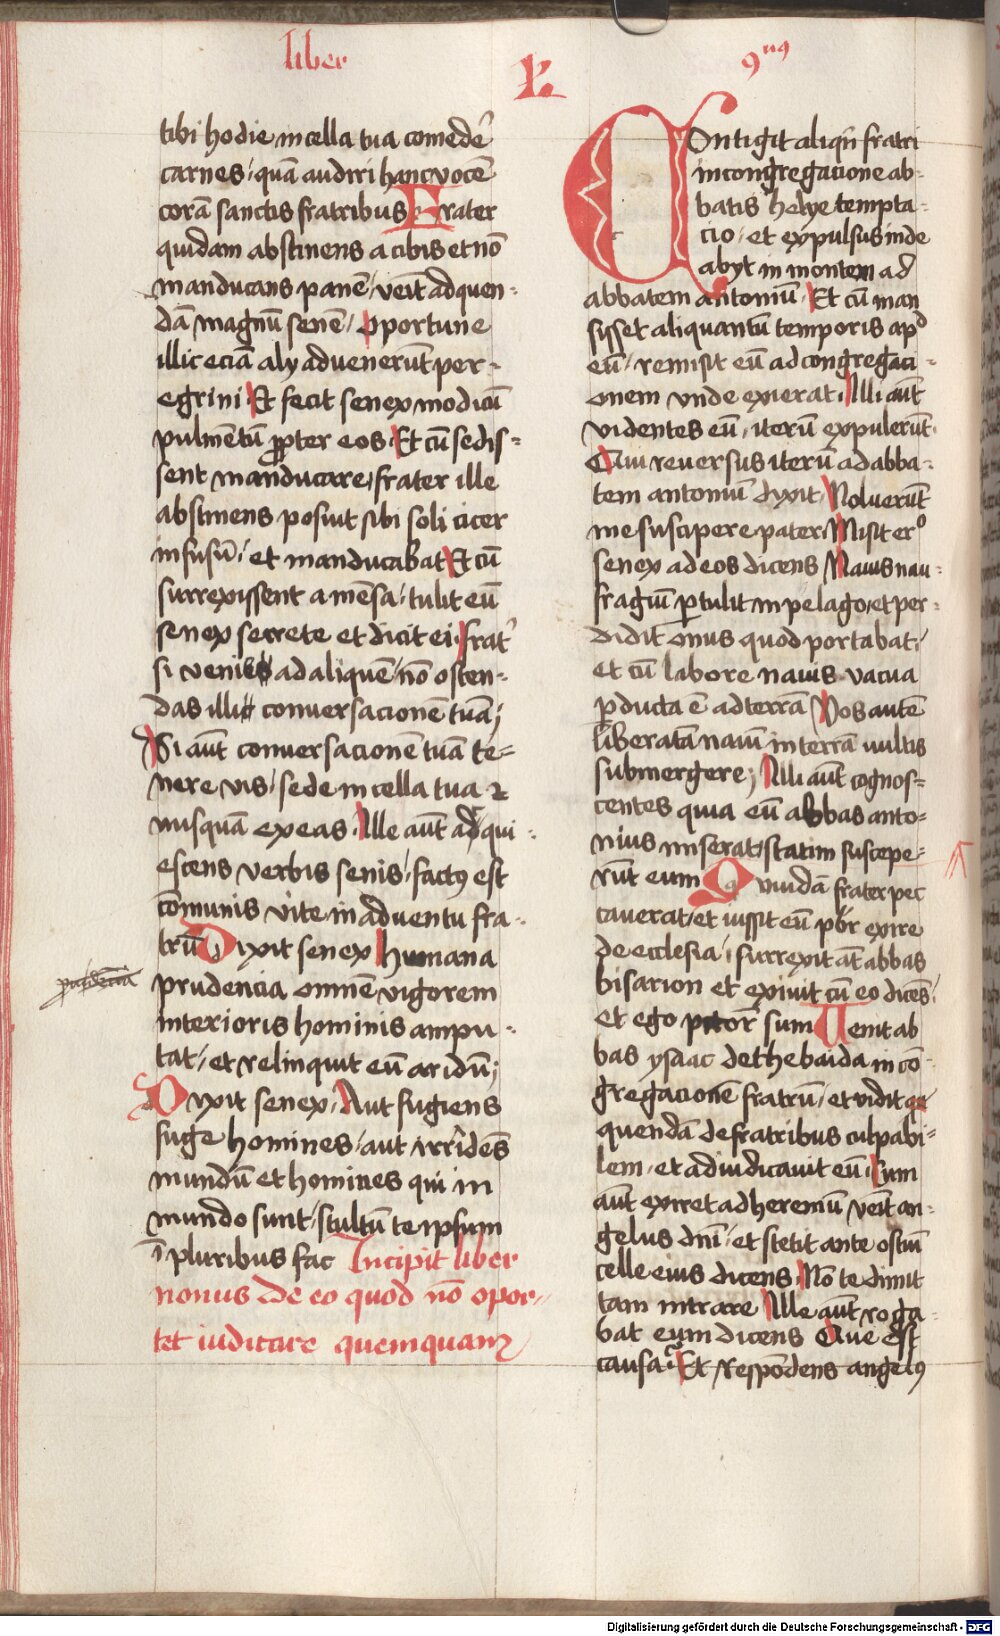 liber
9nꝰ
tibi hodie in cella tua comedẽ
carnes / quã audiri hanc vocẽ
corã sanctis fratribus Erater
quidam abstinens a cibis et nõ
manducans panẽ / veit̃ ad quen-
dã magnũ senẽ / Oportune
illic eciã aly advenerũt per-
egrini Et fecit senex modicũ
pulmẽtũ ꝓpter eos Et cũ sedis-
sent manducare / frater ille
abstinens posuit sibi soli cicer
infusũ / et manducabat Et cũ
surrexissent a mẽsa / tulit eũ
senex secrete et dicit ei frat̉
si venies ad aliquẽ / nõ osten-
das illi conversacionẽ tuã;
Si aũt conversacionẽ tuã te-
nere vis / sede in cella tua ⁊
nusquã exeas Ille aũt adqui-
escens verbis senis / factꝰ est
cõmunis vite in adventu fra-
trũ Dixit senex Humana
prudencia omnẽ vigorem
interioris hominis ampu-
tat / et relinquit eũ aridũ;
Dixit senex Aut fugiens
fuge homines / aut irridẽs
mundũ et homines qui in
mundo sunt / stultũ te ipsum
ĩ pluribus fac Incipit liber
nonus De eo quod nõ opor-
tet iudicare quemquam
Contigit aliqñ fratri
in congregacione ab-
batis helye tempta-
cio / et expulsus inde
abyt in montem ad
abbatem antoniũ Et cũ man
sisset aliquantũ temporis apd
eũ / remisit eũ ad congregaci-
onem vnde exierat Illi aũt
videntes eũ / iterũ expulerũt
Qui reversus iterũ ad abba-
tem antoniũ dixit Noluerũt
me suscipere pater Misit ero
senex ad eos dicens Navis nau-
fragiũ ꝑtulit in pelago / et per-
didit onus quod portabat /
et cũ labore navis vacua
ꝑducta ẽ ad terrã Vos autẽ
liberatã navĩ in terrã vultis
submergere; Illi aũt cognos-
centes quia eũ abbas anto-
nius miserat / statim suscepe-
rũt eum Quidã frater pec
caverat / et iussit eũ pbr̃ exire
de ecclesia / surrexit aũt abbas
bisarion et exivit cũ eo dicẽs /
et ego pctor̃ sum Venit ab
bas ysaac de thebaida in cõ-
gregacionẽ fratrũ / et vidit
quendã de fratribus culpabi-
lem / et adiudicavit eũ Cum
aũt exiret ad heremũ veĩt an-
gelus dñi / et stetit ante ostiũ
celle eius dicens Nõ te dimit
tam intrare Ille aũt roga-
bat eum dicens Que est
causa Et respõdens angelꝰ
Digitalisierung gefördert durch die Deutsche Forschungsgemeinschaft - DFG